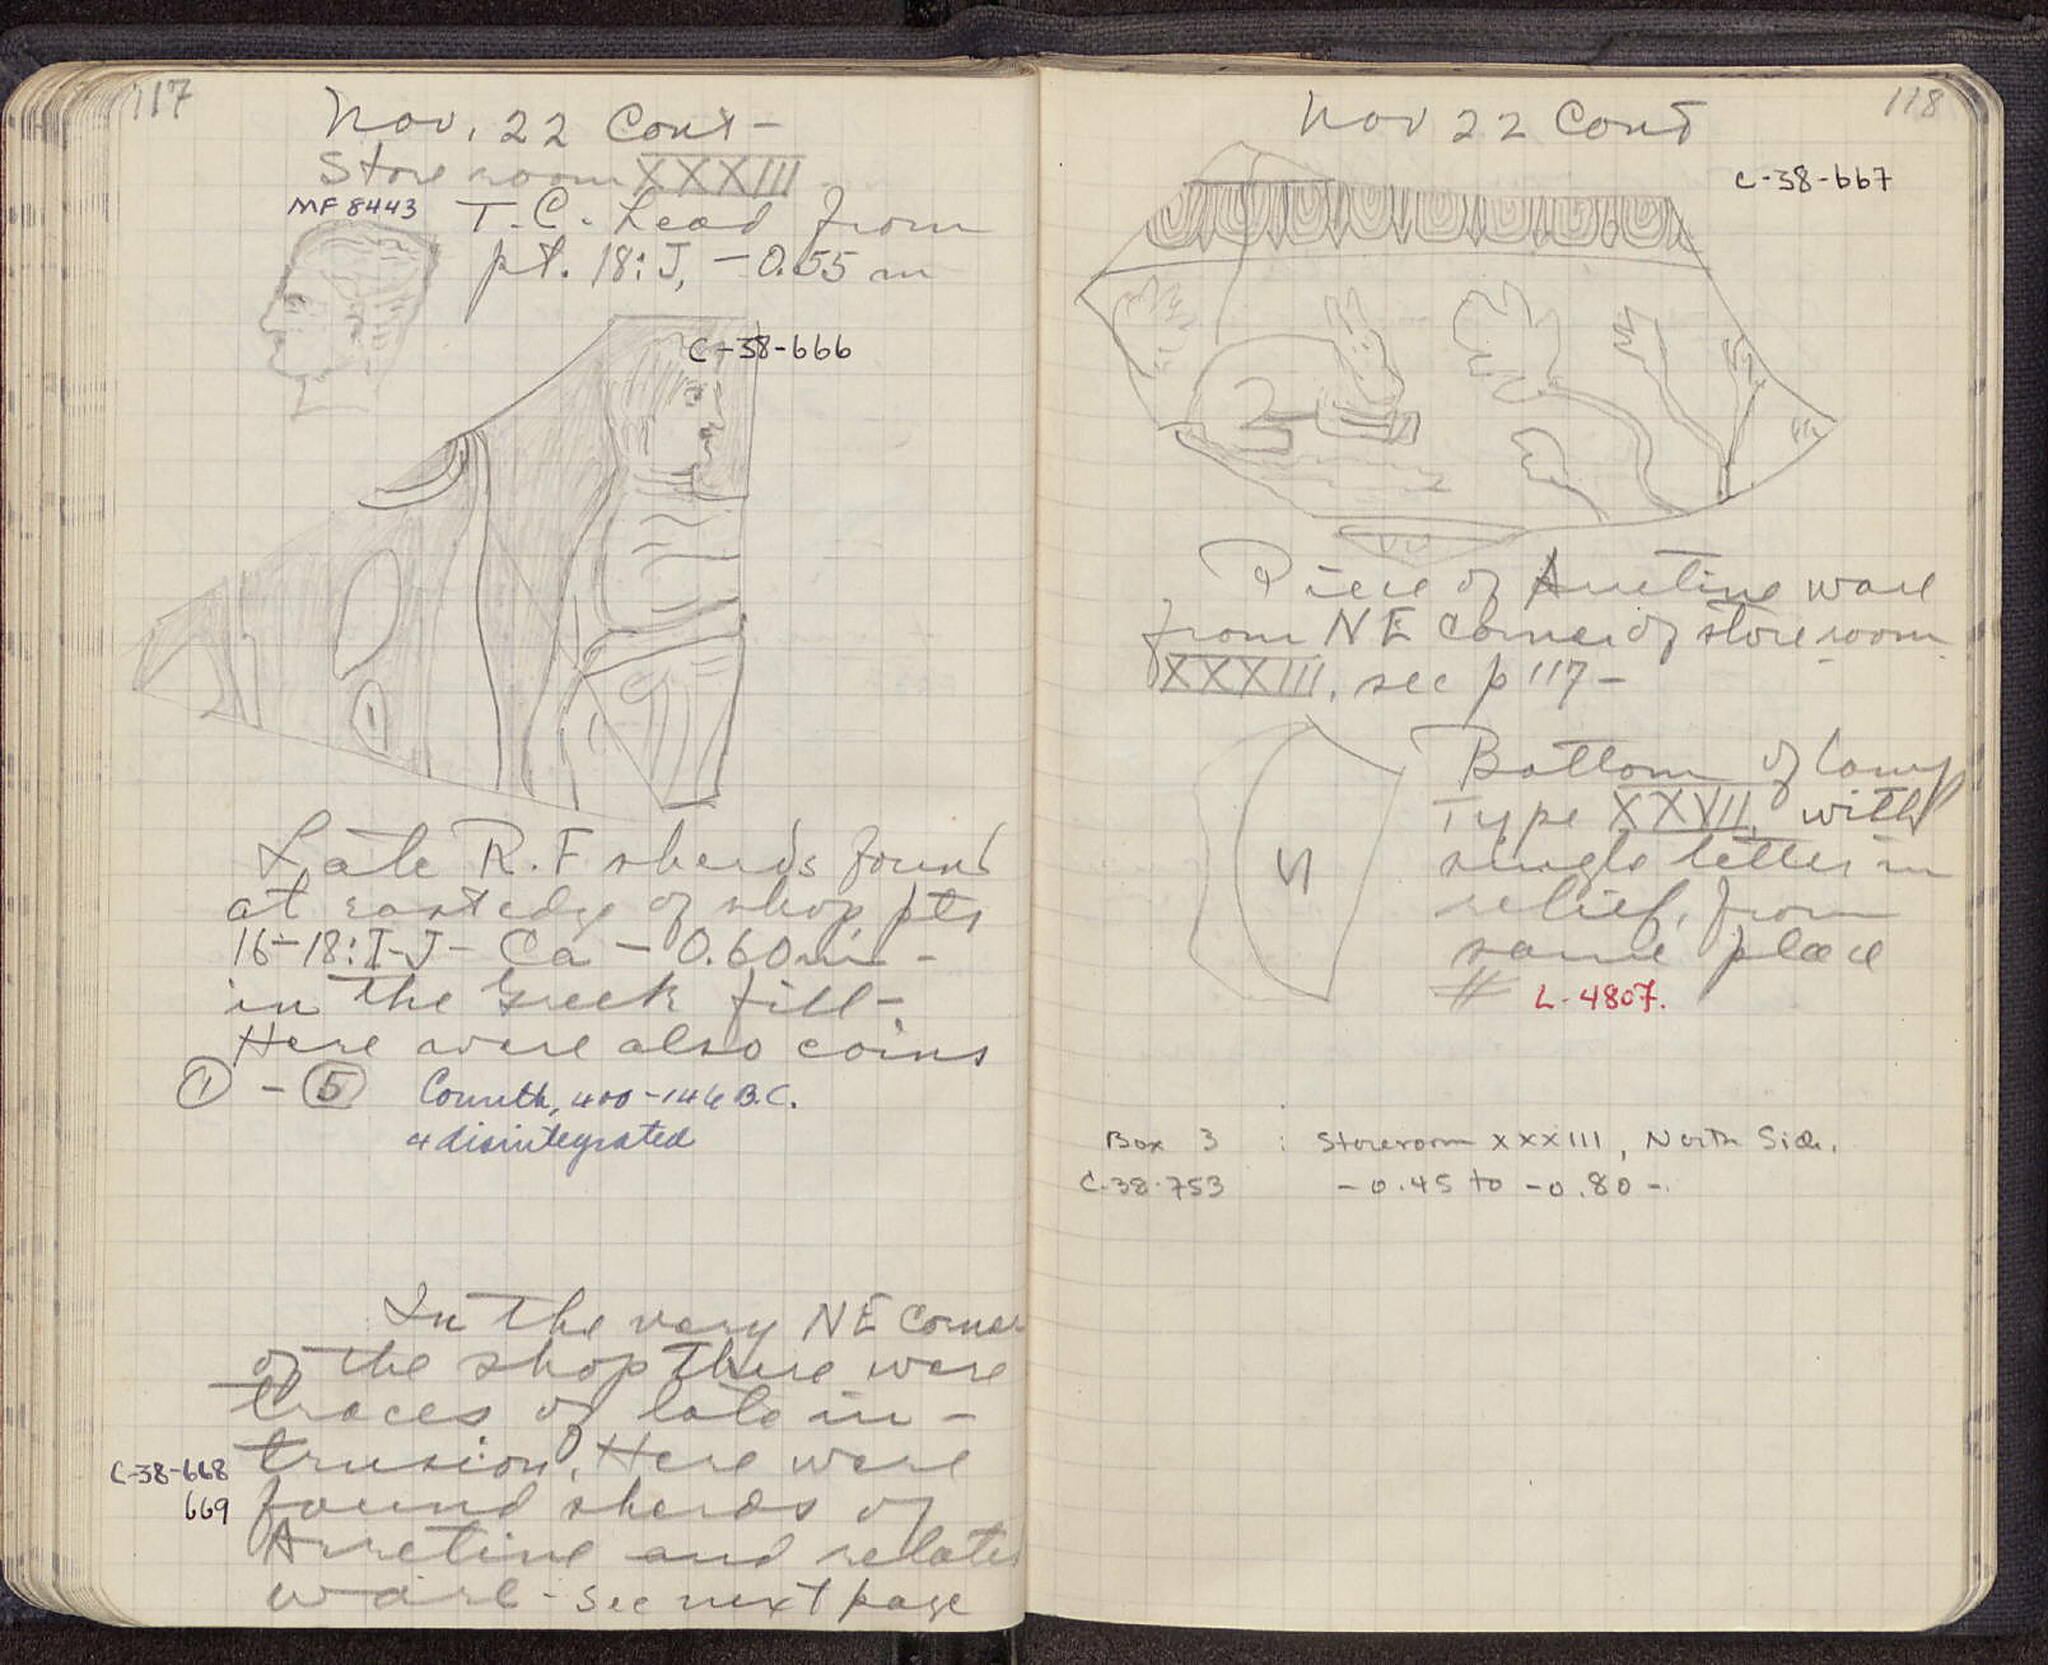 117
Nov. 22 Cont-
Store room XXXIII
MF 8443
T.C. head from
pt. 18:J, -0.55 m
C-38-666
Late R.F sherds found
at east edge of shop, pts
16-18:I-J- Ca -0.60m -
in the Greek fill-.
Here were also coins
1 - 5 Corinth, 400-146 B.C.
4 disintegrated
In the very NE Corner
of the shop there were
traces of late in-
trusion. Here were
C-38-668
669
found sherds of
Arretine and related
ware - see next page
118
Nov 22 Cont
C-38-667
Piece of Arretine ware
from NE corner of store room
XXXIII, see p 117-
Bottom of lamp
Type XXVII, with
single letter in
relief, from
same place
L-4807.
Box 3 : Storeroom XXXIII, North Side.
C-38-753 -0.45 to -0.80 -.